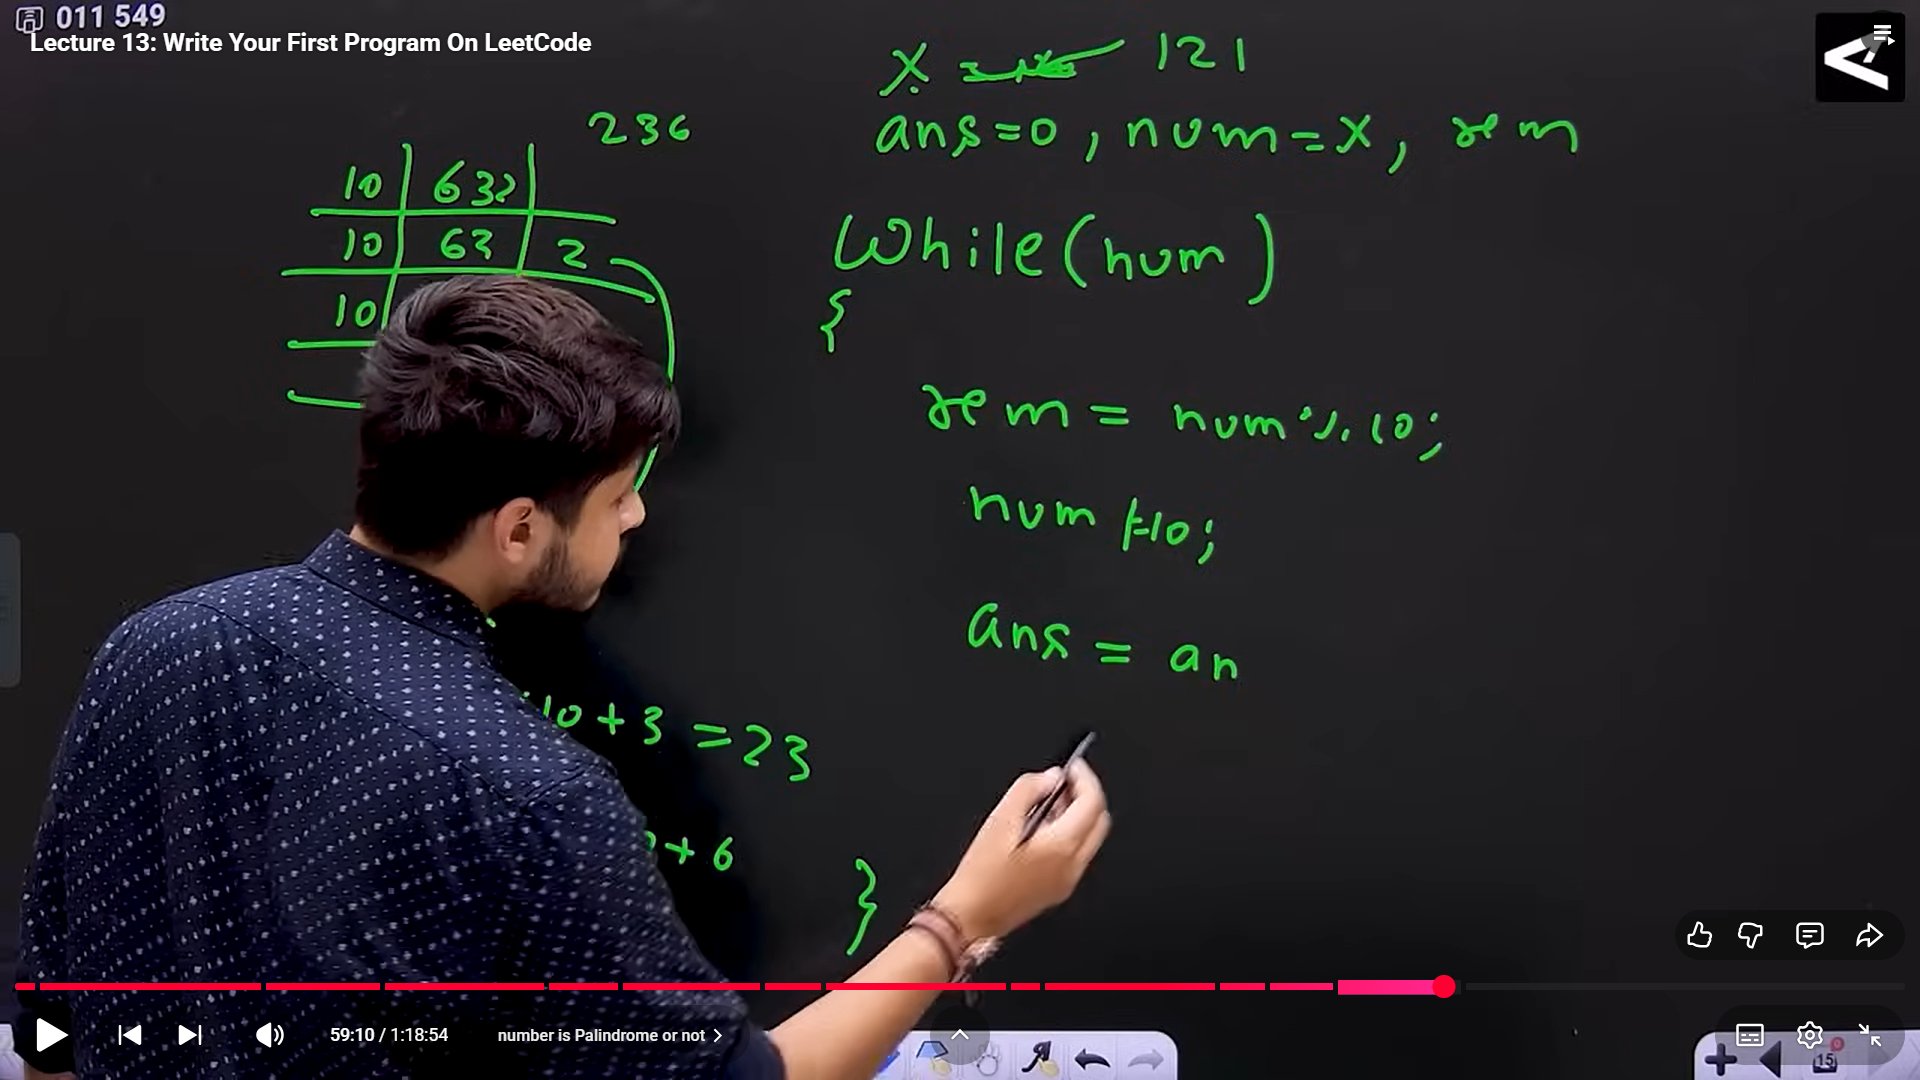 011 549
Lecture 13: Write Your First Program On LeetCode
x = 121
ans=0, num=x, rem
236
10 632
10 63 2
10
while(num)
{
rem = num%10;
num /=10;
ans = an
10+3 =23
+6
}
59:10 / 1:18:54
number is Palindrome or not >
15